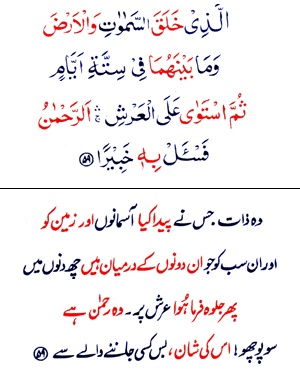 الَّذِیْ خَلَقَ السَّمٰوٰتِ وَالْاَرْضَ
وَمَا بَیْنَهُمَا فِیْ سِتَّةِ اَیَّامٍ
ثُمَّ اسْتَوٰی عَلَی الْعَرْشِ ۛۚ اَلرَّحْمٰنُ
فَسْـَٔلْ بِهٖ خَبِیْرًا ﴿۵۹﴾
وہ ذات جس نے پیدا کیا آسمانوں اور زمین کو
اور ان سب کو جو ان دونوں کے درمیان ہیں چھ دنوں میں
پھر جلوہ فرما ہُوا عرش پر۔ وہ رحمٰن ہے
سو پوچھو! اس کی شان، بس کسی جاننے والے سے ﴿۵۹﴾